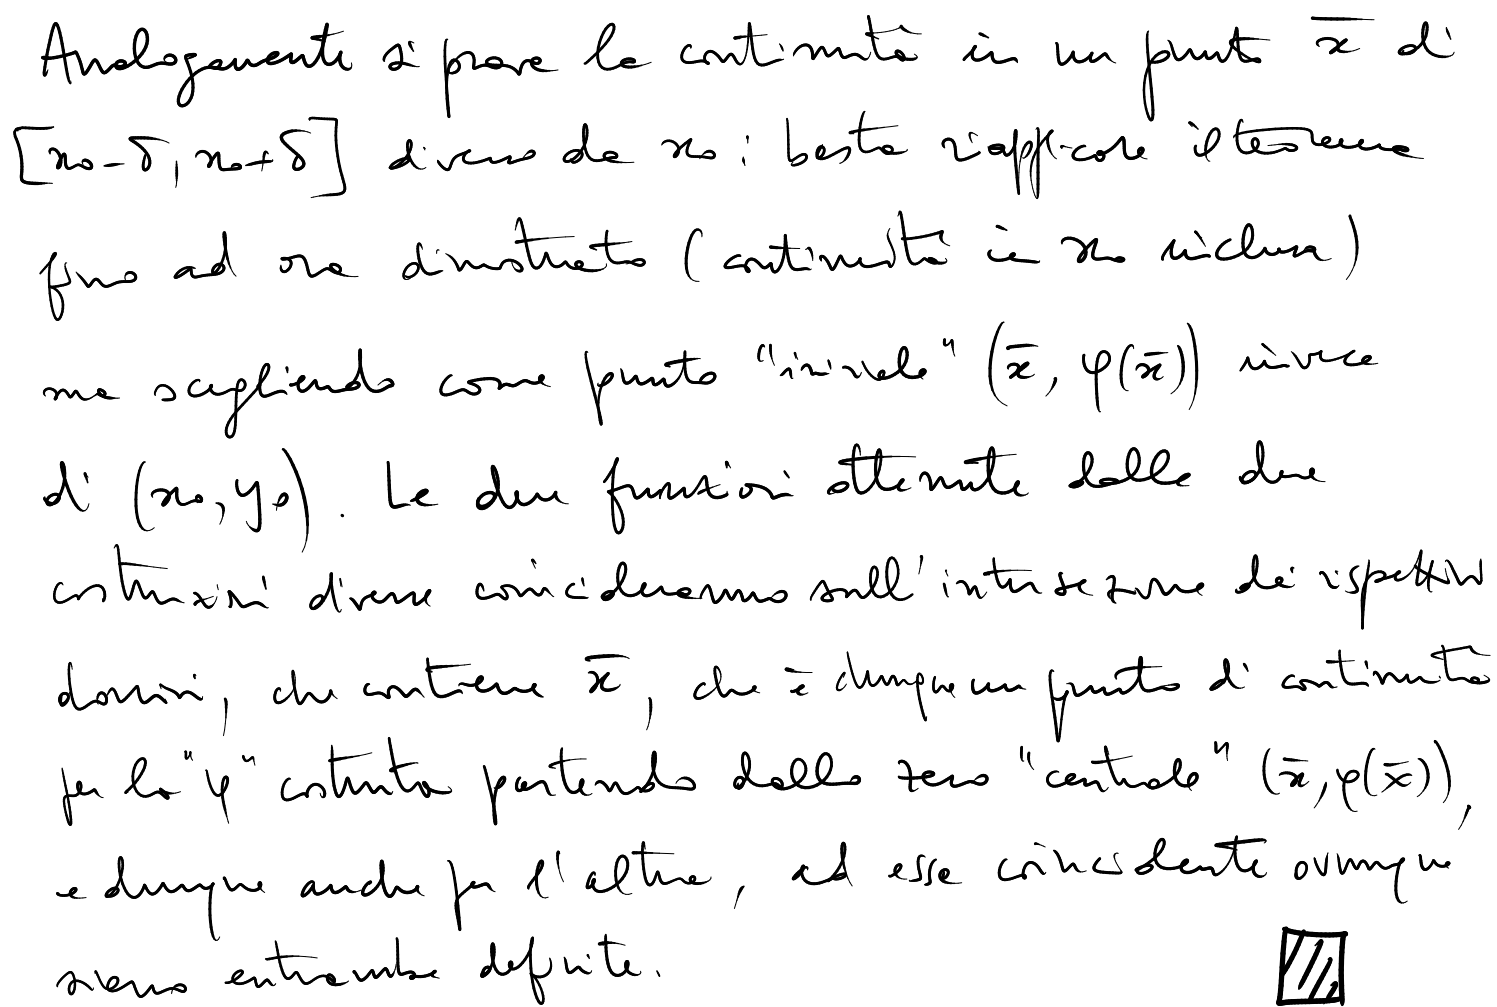 Analogamente si prova la continuità in un punto x̄ di
[x₀-δ, x₀+δ] diverso da x₀: basta riapplicare il teorema
fino ad ora dimostrato (continuità in x₀ inclusa)
ma scegliendo come punto "iniziale" (x̄, φ(x̄)) invece
di (x₀, y₀). Le due funzioni ottenute dalle due
costruzioni diverse coincideranno sull'intersezione dei rispettivi
domini, che contiene x̄, che è dunque un punto di continuità
per la "φ" costruita partendo dallo zero "centrale" (x̄, φ(x̄)),
e dunque anche per l'altra, ad essa coincidente ovunque
siano entrambe definite.